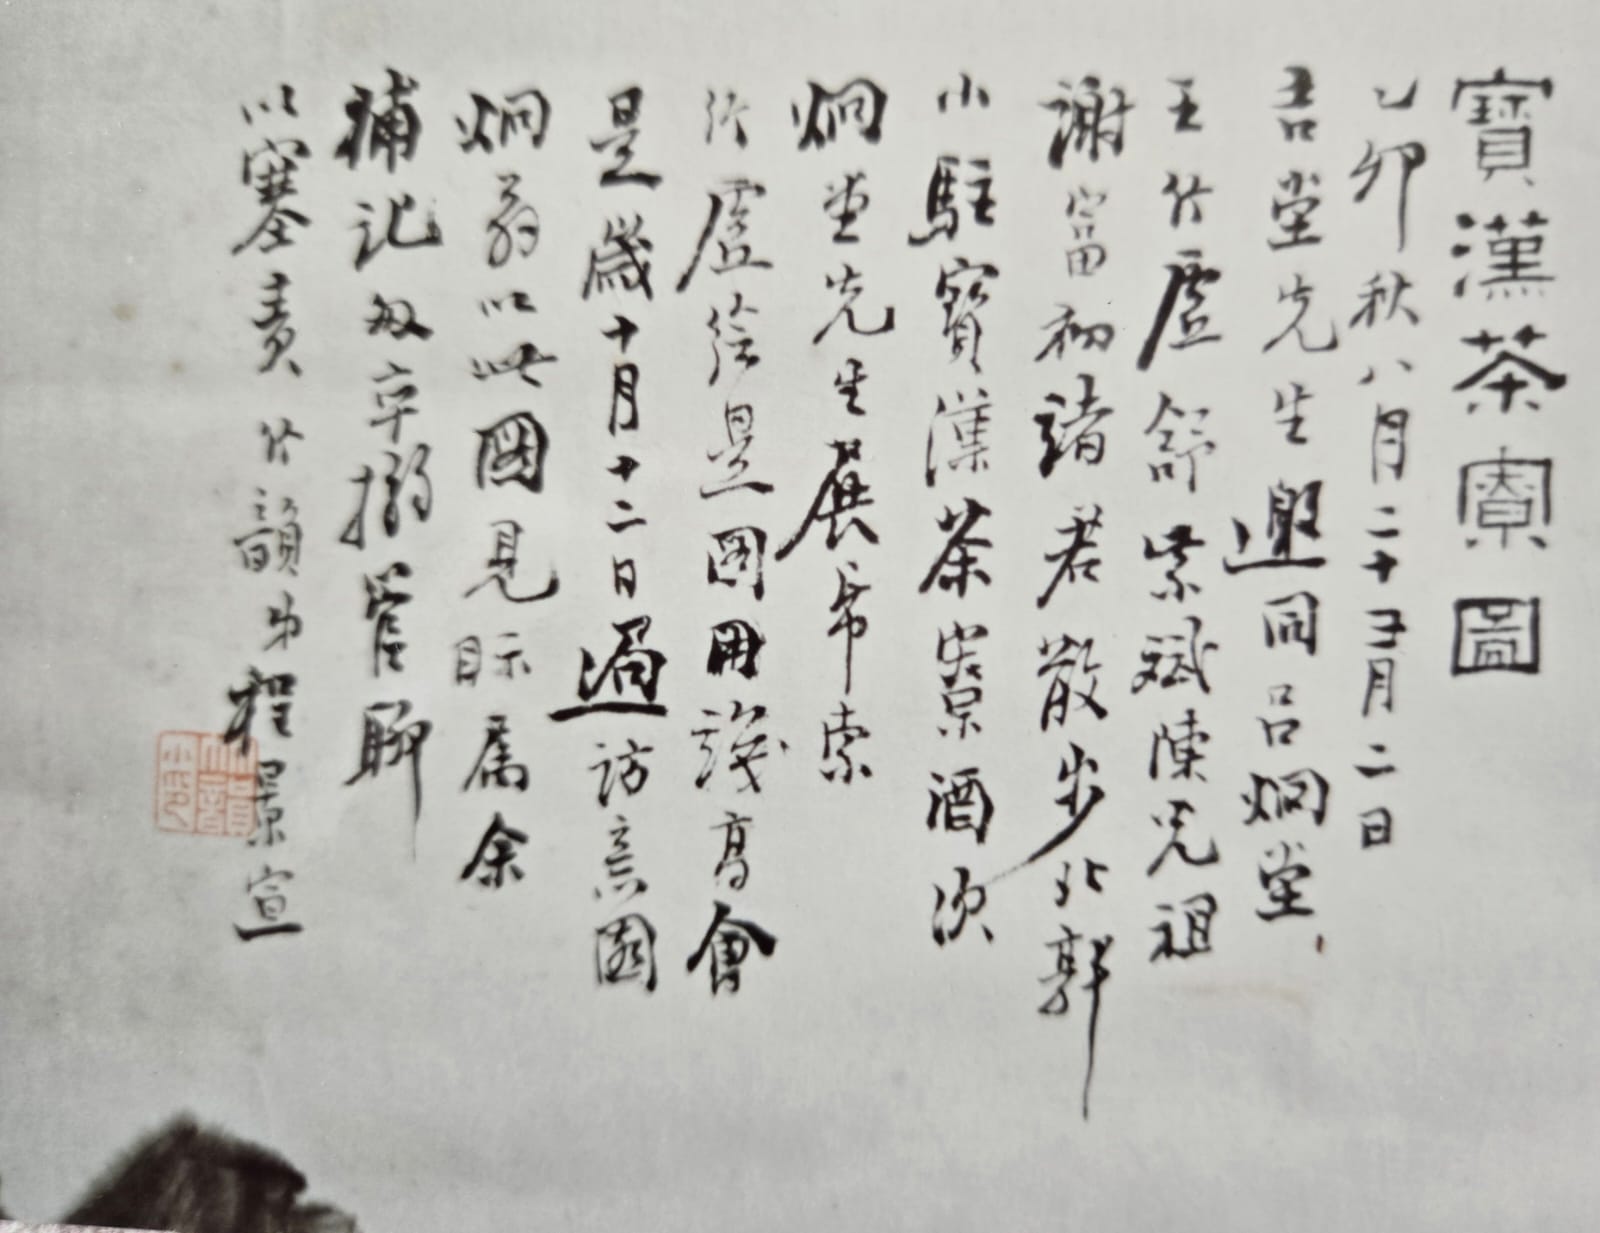 寶漢茶寮圖
乙卯秋八月二十五月二日
吉堂先生邀同呂炯堂
王竹虛舒紫斌陳兄祖
謝富初諸君散步北郭
小駐寶漢茶寮酒次
炯堂先生展帋索
竹虛繪是圖用識高會
是歲十月十二日過訪意園
炯翁以此圖見眎屬余
補記匆卒搦管聊
以塞責竹韻弟程景宣
竹韻小印